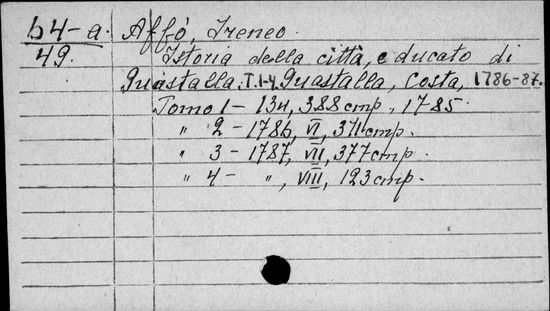 b4-a. Affò, Ireneo.
49. Istoria della città, e ducato di
Guastalla. T.1-4. Guastalla, Costa, 1786-87.
Tomo 1 - 134, 388 стр., 1785.
" 2 - 1786, VI, 371 стр.
" 3 - 1787, VII, 377 стр.
" 4 - ", VIII, 123 стр.